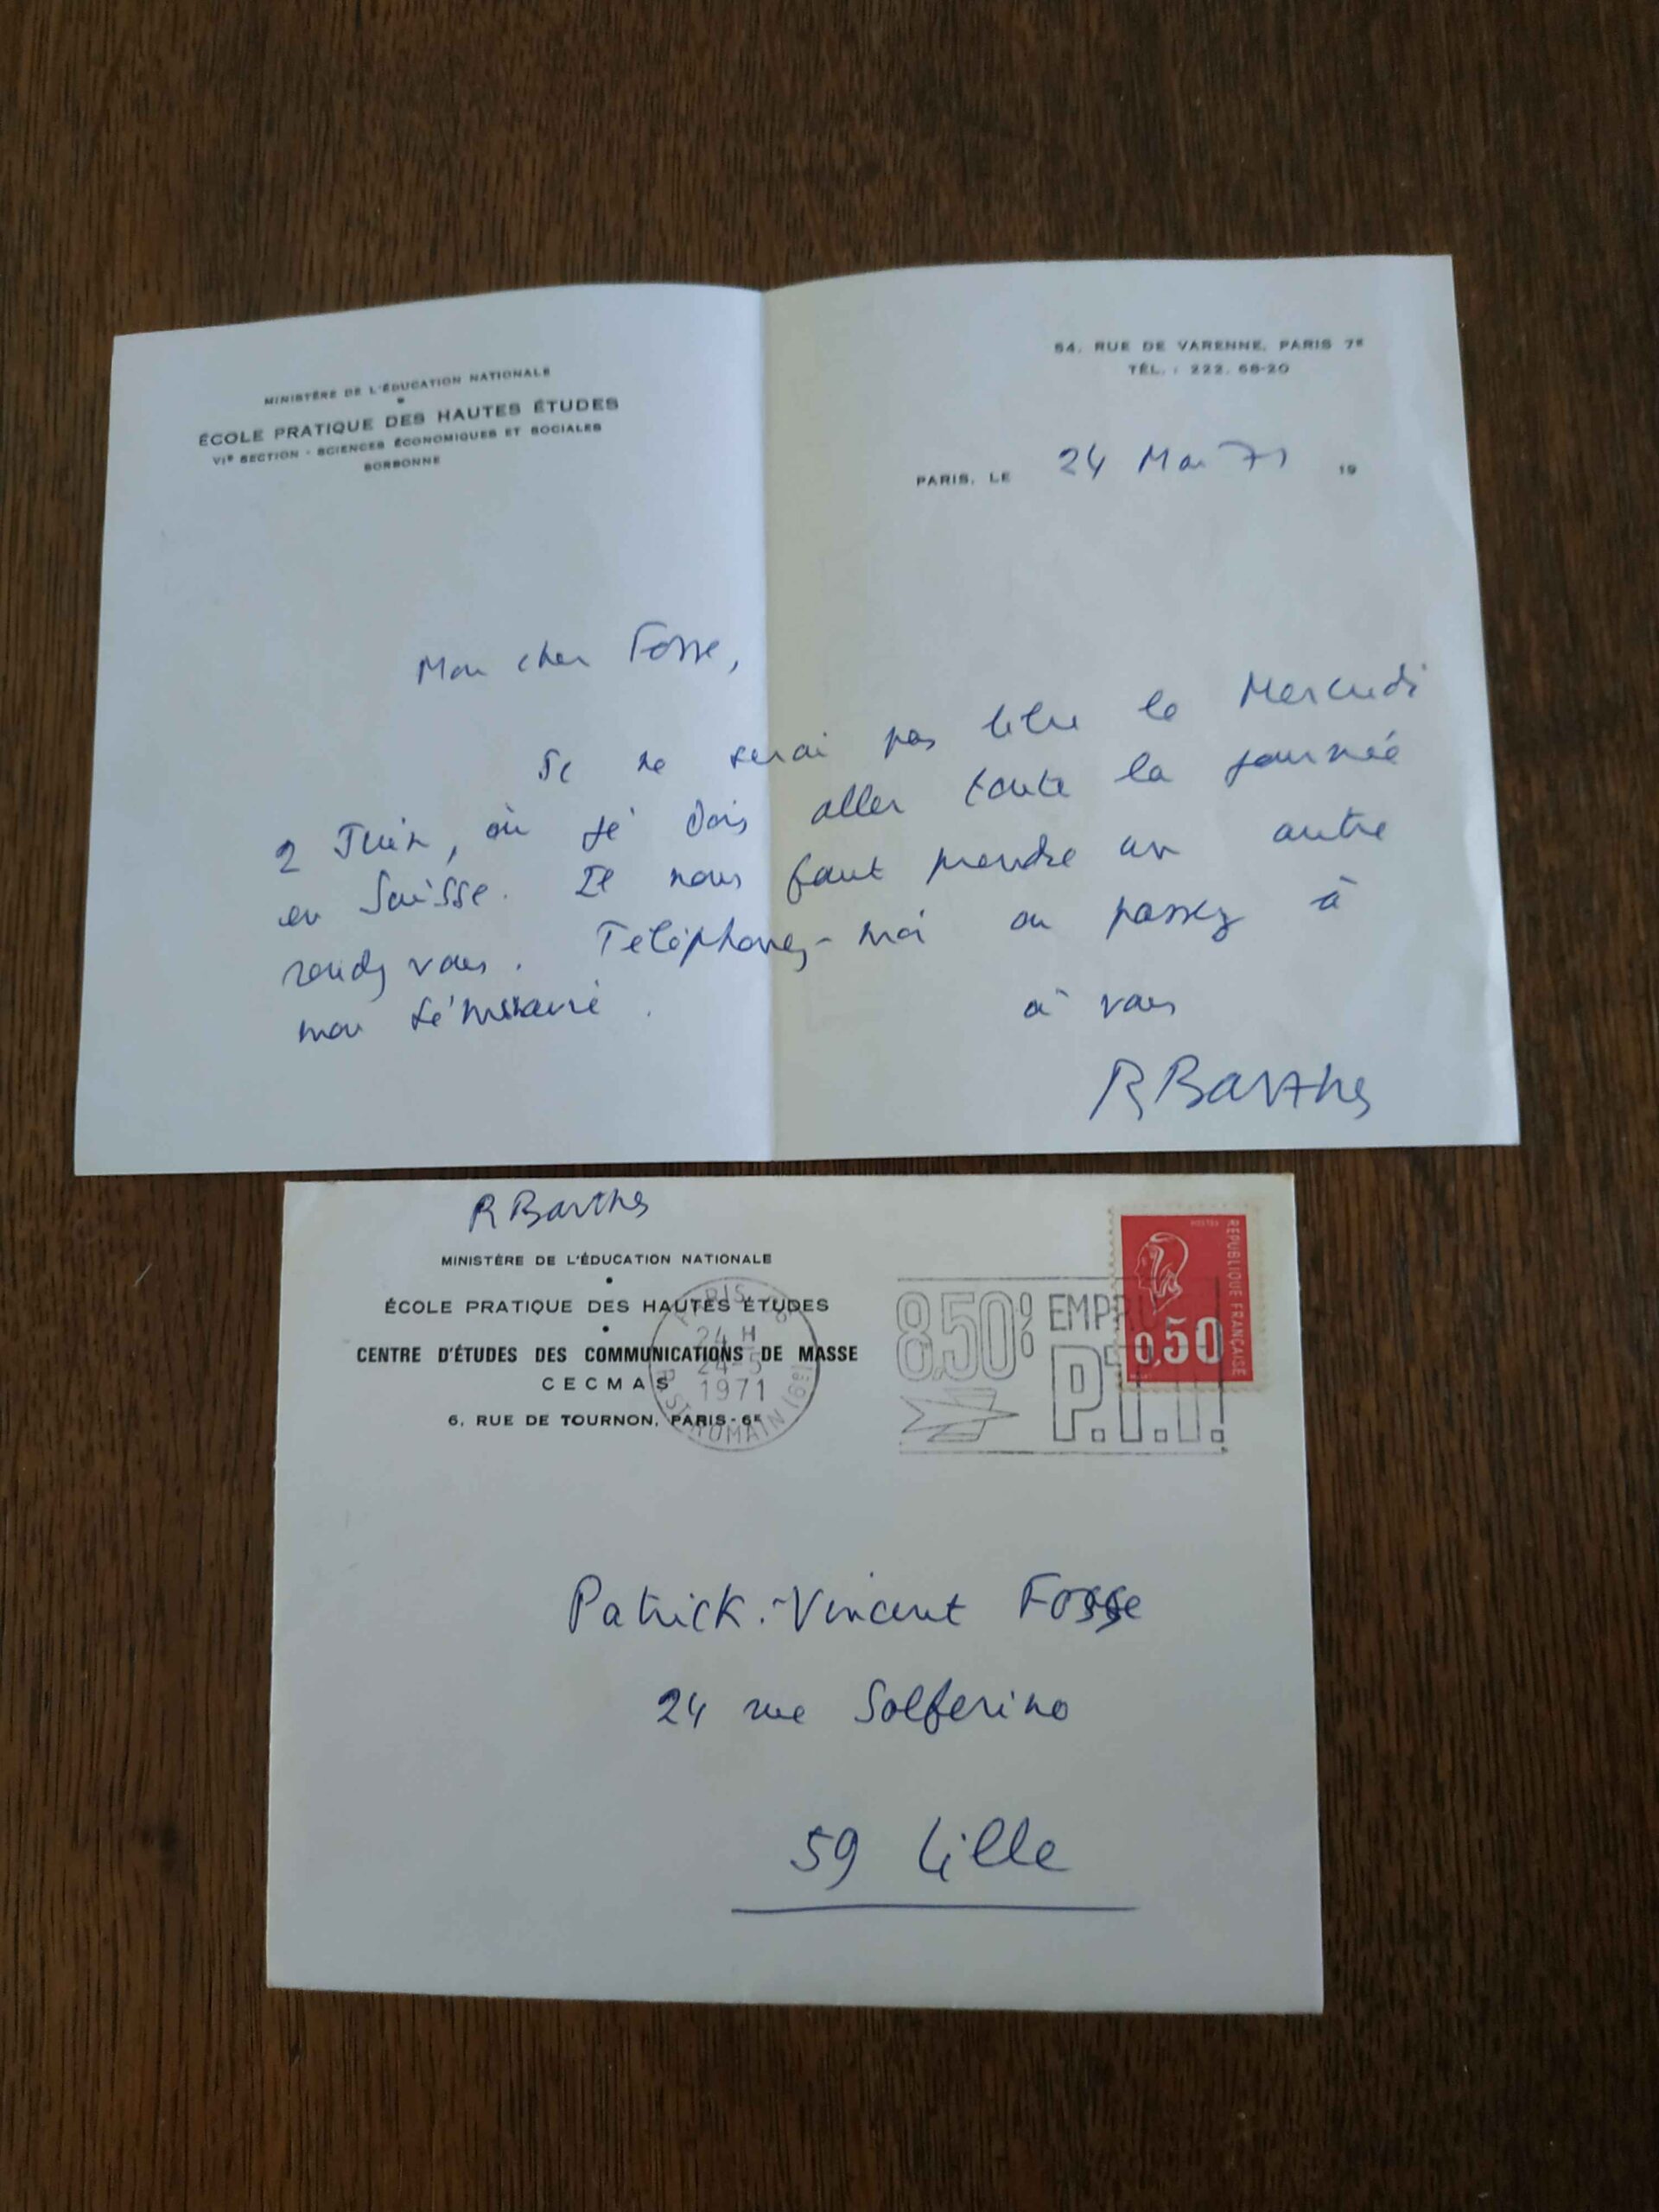 MINISTÈRE DE L'ÉDUCATION NATIONALE
ÉCOLE PRATIQUE DES HAUTES ÉTUDES
VIE SECTION - SCIENCES ÉCONOMIQUES ET SOCIALES
SORBONNE
54, RUE DE VARENNE, PARIS 7E
TÉL. : 222. 68-20
PARIS, LE 24 Mai 71 19
Mon cher Fosse,
Je ne serai pas libre le Mercredi
2 Juin, où je dois aller toute la journée
en Suisse. Il nous faut prendre un autre
rendez vous. Téléphonez-moi ou passez à
mon séminaire.
à vous
R Barthes
R Barthes
MINISTÈRE DE L'ÉDUCATION NATIONALE
ÉCOLE PRATIQUE DES HAUTES ÉTUDES
CENTRE D'ÉTUDES DES COMMUNICATIONS DE MASSE
CECMAS
6, RUE DE TOURNON, PARIS-6E
PARIS
24 H
24-5
1971
8,50%
P.T.T.
POSTES
REPUBLIQUE FRANÇAISE
0,50
Patrick-Vincent Fosse
24 rue Solferino
59 Lille